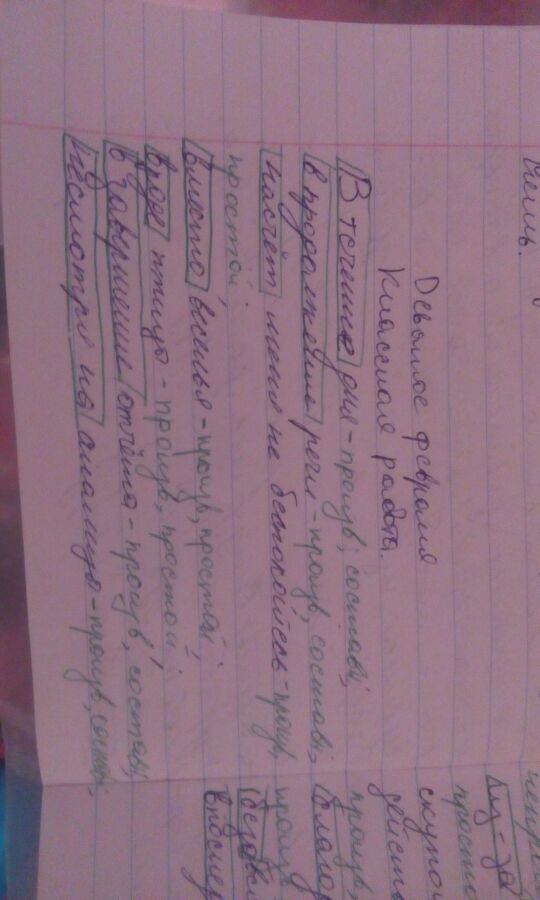 Девятое февраля
Классная работа.
В течение дня - произв, составн;
в продолжение речи - произв, составн;
насчёт меня не беспокойтесь - произв,
простой;
вместо веселья - произв, простой;
вроде птицы - произв, простой;
в завершение отчёта - произв, составн;
несмотря на
из-за
просто
скупой
действ
произв,
благод
произв